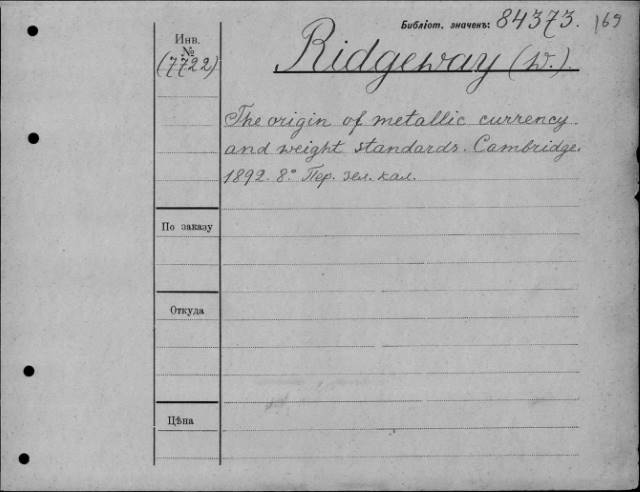 Библіот. значенъ: 84373. 169
Инв.
№
(7722)
Ridgeway (W.)
The origin of metallic currency
and weight standards. Cambridge.
1892. 8° Пер. зел. кал.
По заказу
Откуда
Цѣна